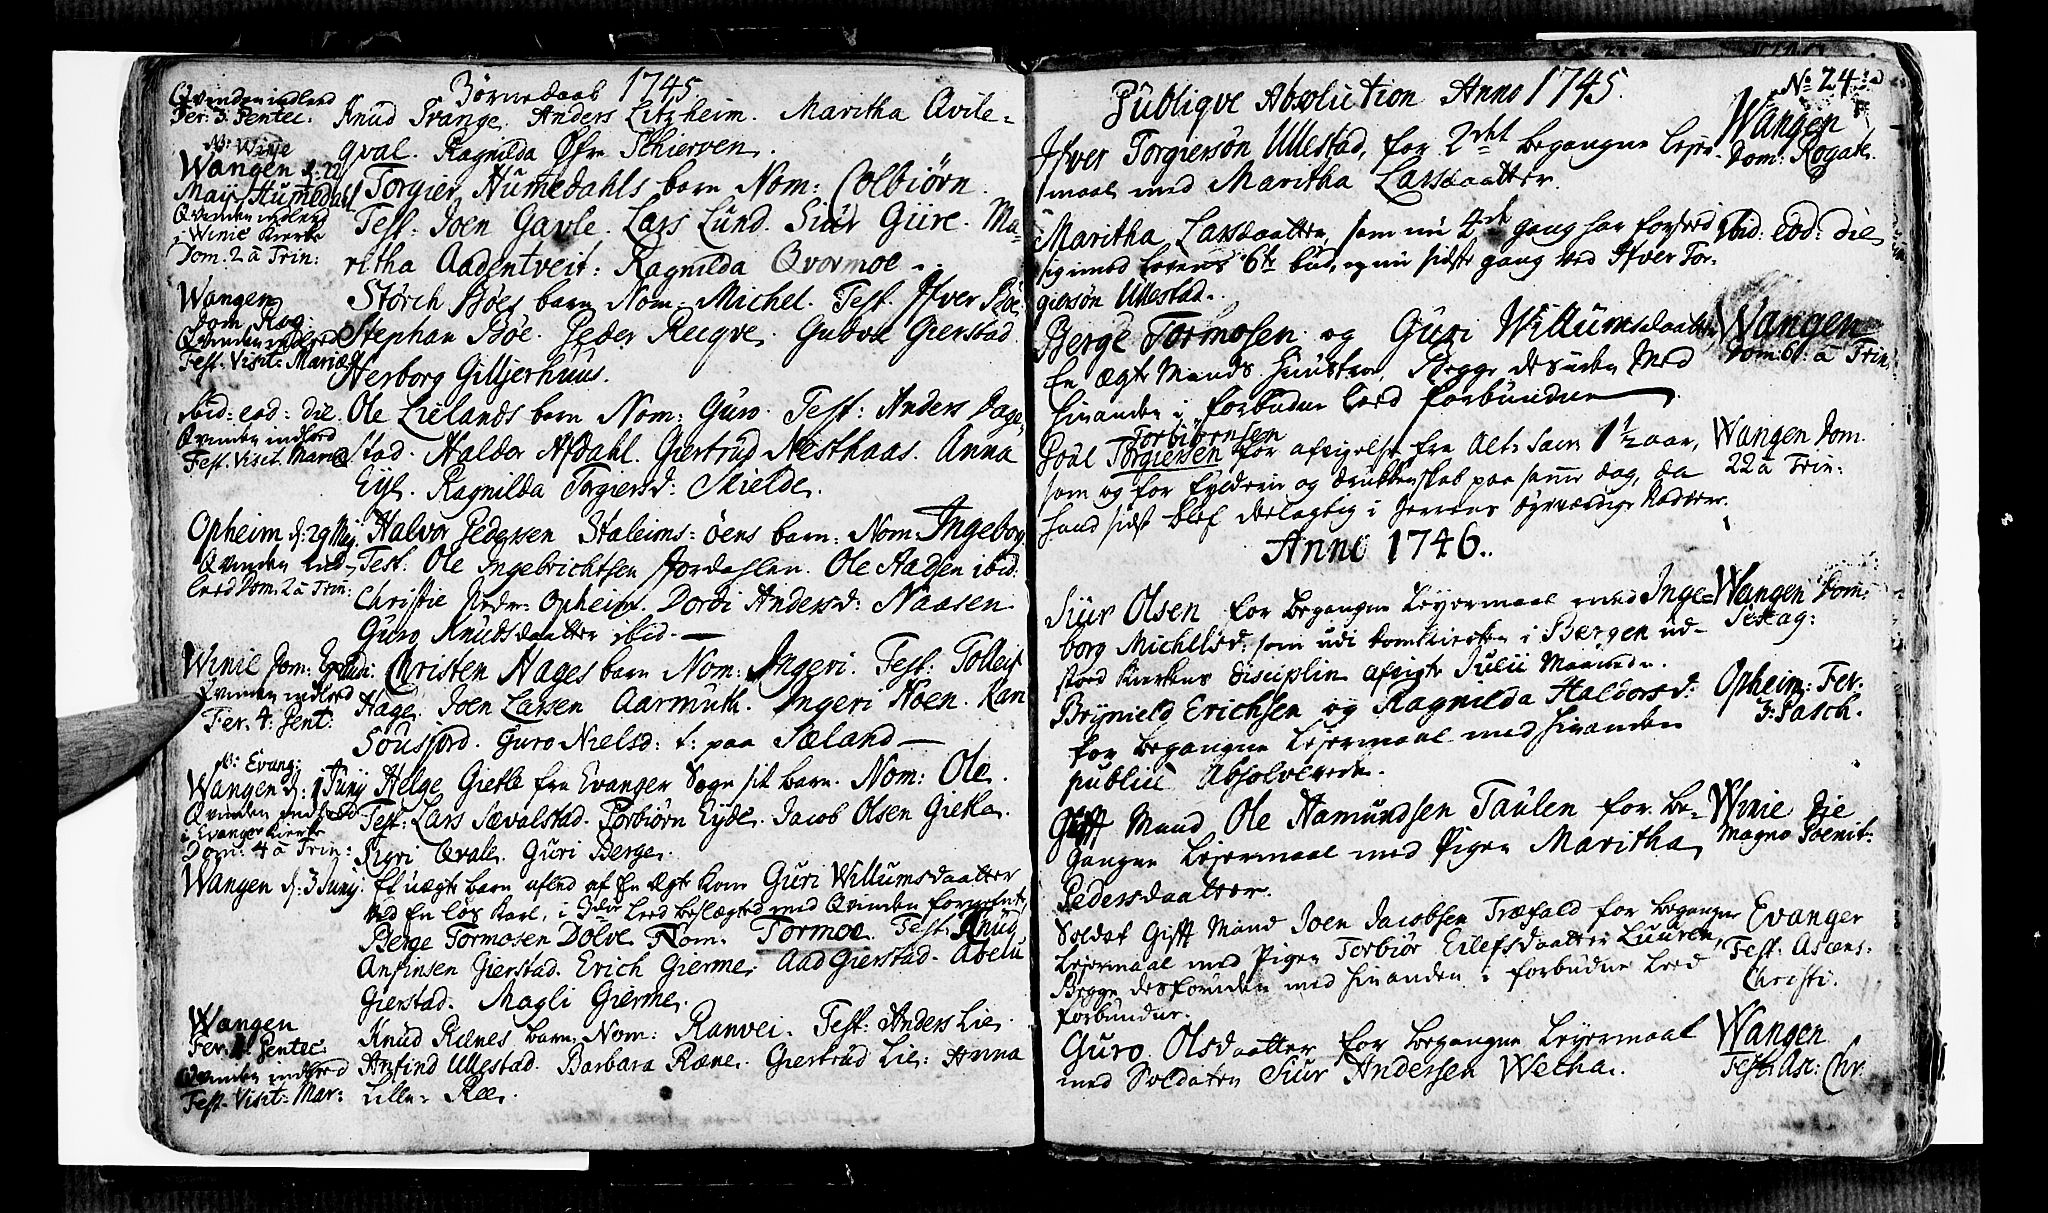 Børnedaab 1745.
Qvinden indleed
Fer: 3. Pentec:
Knud Trange. Anders Litzheim. Maritha Qvile-
qval. Ragnilda Øfre Schierven.
N: Winje
Wangen d: 22
Maij Humedal
Torgier Humedahls barn Nom: Colbiørn.
Qvinden indleed
i Winie Kierke
Dom. 2 à Trin:
Test: Joen Gavle. Lars Lund. Siur Giire. Ma-
ritha Aadentveit: Ragnilda Qvormoe.
Wangen
Dom Rog:
Qvinden indleed
Fest: Visit: Mariæ
Størch Bøes barn Nom: Michel. Test. Ifver Bøe.
Stephan Bøe. Peder Recqve. Gudve Gierstad.
Herborg Gilljerhuus.
ibid: eod: die
Qvinden indleed
Fest. Visit. Mariæ
Ole Lielands barn Nom: Guro. Test: Anders Dage-
stad. Haldor Afdahl. Giertrud Nesthaas. Anna
Eye. Ragnilda Torgiersd: Skielde.
Opheim d: 29 Maij.
Qvinden ind-
leed Dom. 2 à Trin:
Halvor Pedersen Staleims-øens barn: Nom: Ingeborg
Test: Ole Ingebrichtsen Jordahlen. Ole Hadsen ibid:
Christie Peders: Opheim. Dordi Andersd: Naasen
Guro Knudsdaatter ibid.
Winie Dom: Exaudi:
Qvinden indleed
Fer: 4: Pent:
Christen Hages barn Nom: Ingeri. Test: Tolleif
Hage. Joen Larsen Aarmuth. Ingeri Høen. Kari
Sousjord. Guro Nielsd: t: paa Sæland
N: Evang:
Wangen d: 1 Junij
Qvinden indleed
i Evanger Kierke
Dom: 4 à Trin:
Helge Gietle fra Evanger Sogn sit barn. Nom: Ole.
Test: Lars Sævalstad. Torbiørn Eyde. Jacob Olsen Gietle.
Sigri Qvale. Guri Berge.
Wangen d: 3 Junij.
Et uægte barn aflet af En ægte Kone Guri Willumsdaatter
ved En løs Karl, i 3die Leed beslægted med Qvinden fornefnt
Berge Tormosen Dolve Nom. Tormoe. Test: Knud
Anfinsen Gierstad. Erich Gierme. Aad Gierstad. Abelu
Gierstad. Magli Gierme.
Wangen
Fer: 2. Pentec.
Qvinden indleed
Fest. Visit: Mar:
Knud Rænes barn Nom: Ranvei. Test: Anders Lie.
Arfind Ullestad. Barbara Ræne. Giertrud Lie: Anna
Lille-Ræ.
No. 24
Publiqve Absolution Anno 1745.
Ifver Torgiersøn Ullestad, for 2det begangne Lejer-
maal med Maritha Larsdaatter.
Wangen
Dom: Rogate.
Maritha Larsdaatter, som nu 4de gang har forseed
sig imod Lovens 6te bud, og nu sidste gang ved Ifver Tor-
giersøn Ullestad.
Ibid: eod: die
Berge Tormosen og Guri Willumsdaatter
En ægte Mands Hustrue, Begge desuden Med
hinanden i forbudne Leed forbundne
Wangen
Dom: 6. à Trin:
Torbiørnsen
Poul Torgiersen for afvigelse fra Alt: Sacr. 1½ aar,
som og for Eyldrin og drukkenskab paa samme dag, da
hand sidst blef deelagtig i Herrens Høyværdige Nadvere.
Wangen Dom.
22 à Trin:
Anno 1746.
Siur Olsen for begangne Leyermaal med Inge-
borg Michelsd: som udi Domkirken i Bergen ud-
stoed Kierkens disciplin afvigte Julii Maaned.
Wangen Dom:
Sexag:
Brynield Erichsen og Ragnilda Haldorsd:
for begangne Lejermaal med hinanden
publice Absolverede.
Opheim: Fer.
3: Pasch.
Gift Mand Ole Hamundsen Taulen for be-
gangne Lejermaal med Pigen Maritha
Pedersdaatter.
Winie Die
Magno Poenit:
Soldat Gift Mand Joen Jacobsen Træfald for begangne
Lejermaal med Pigen Torbiør Eilefsdaatter Luuren,
Begge desforuden med hinanden i forbudne Leed
forbundne.
Evanger
Fest: Ascens:
Christi.
Guro Olsdaatter for begangne Leyermaal
med Soldaten Siur Andersen Wetha.
Wangen
Fest: As: Chr: